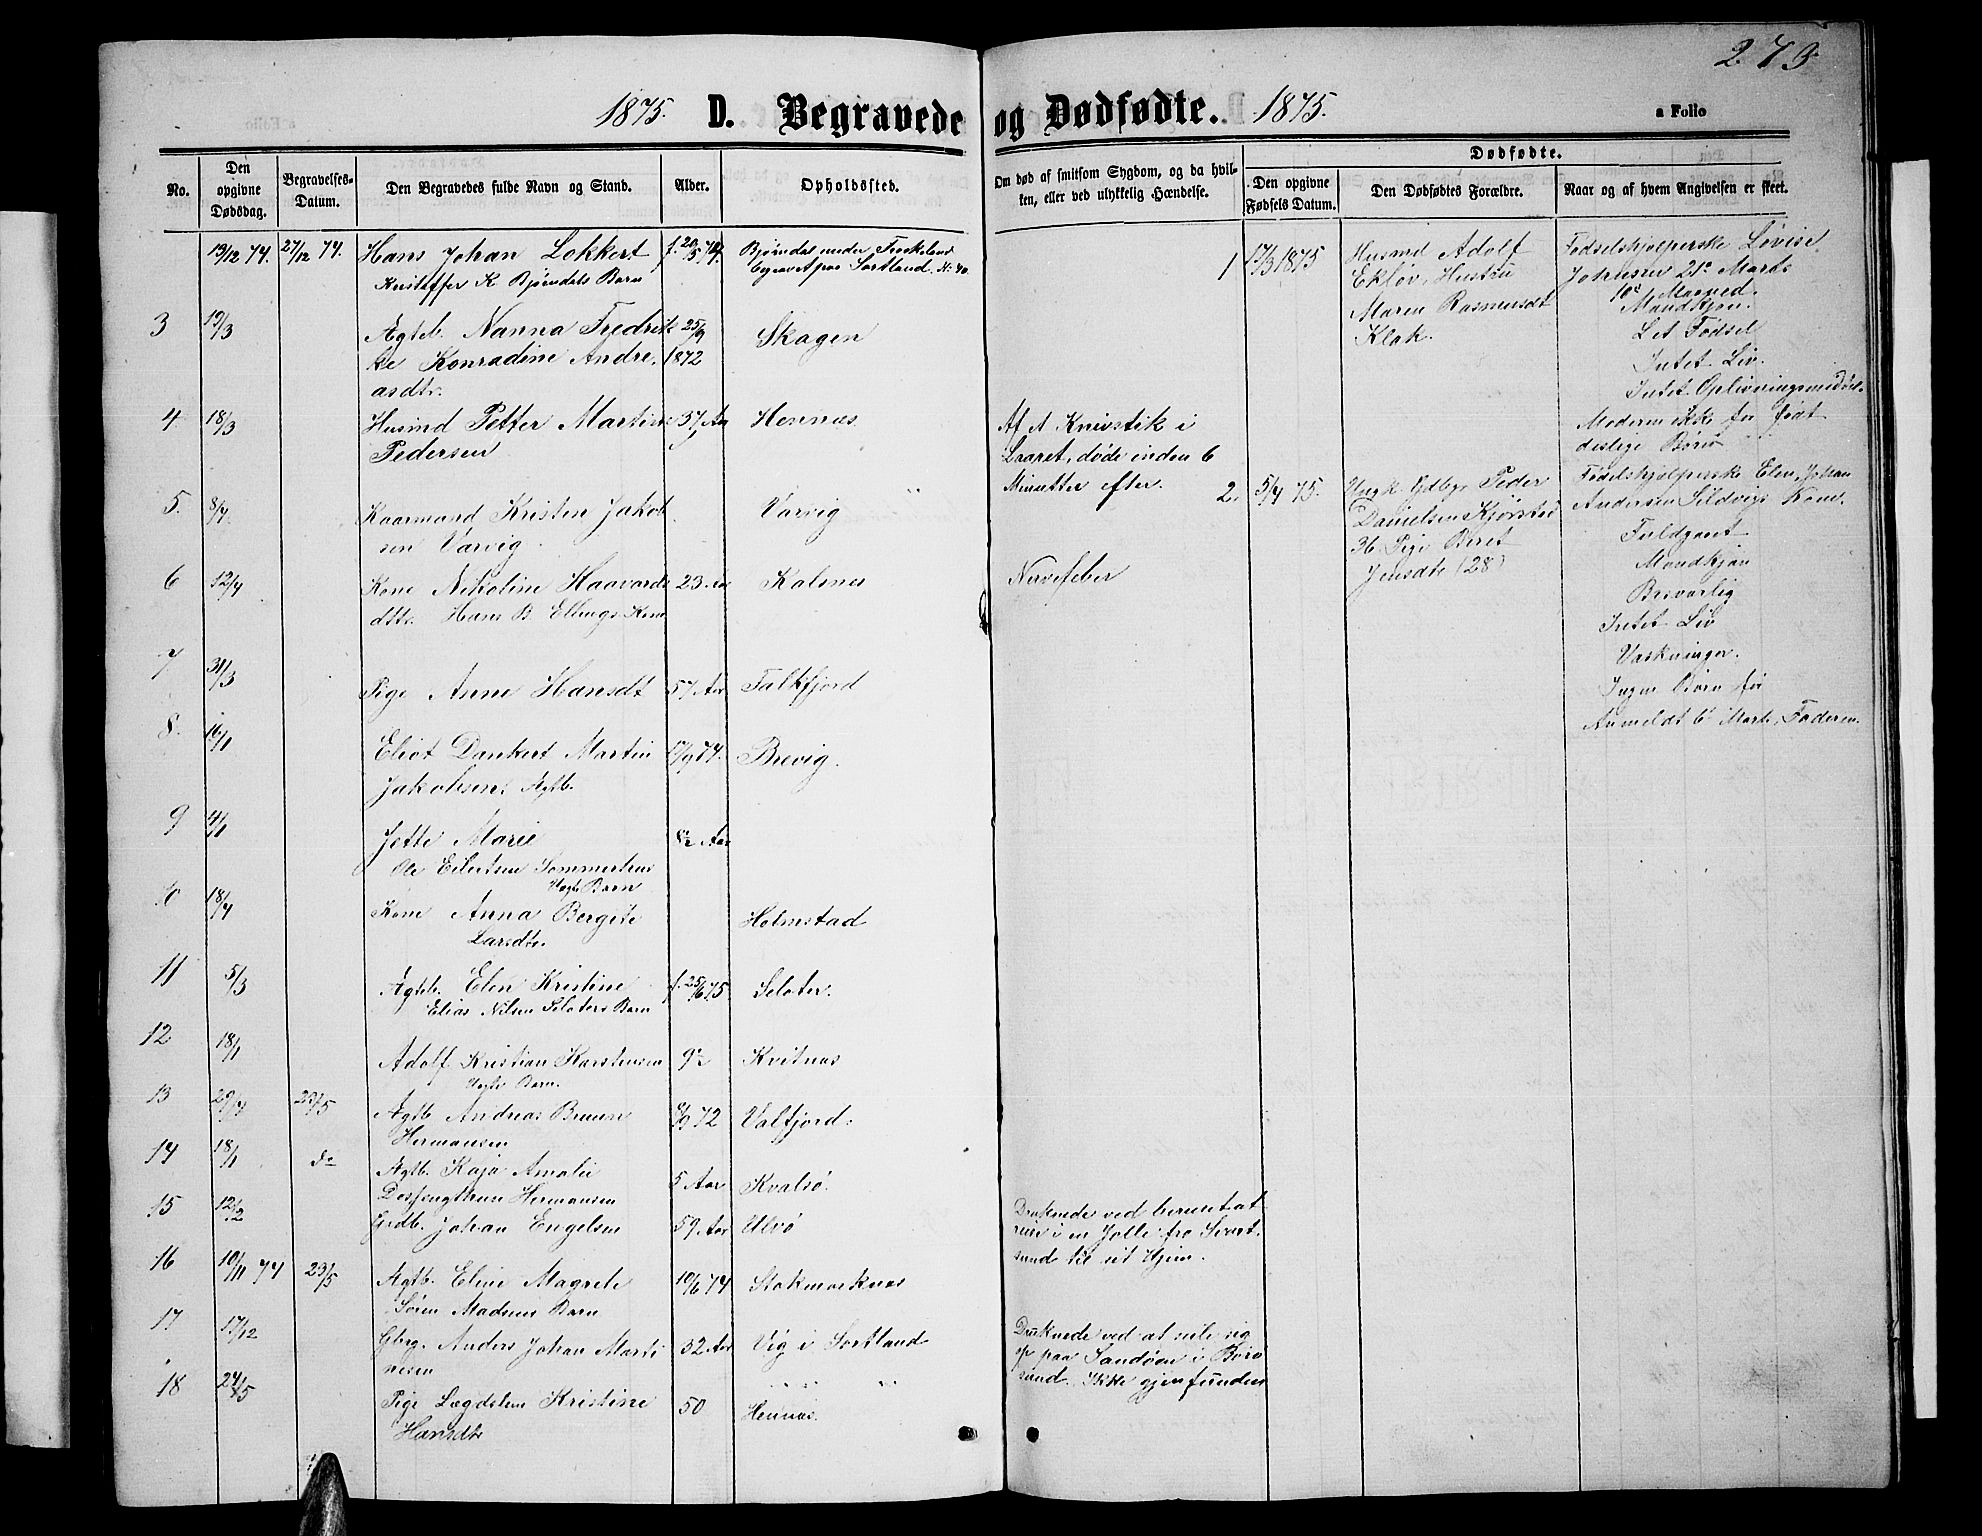 273
1875. D. Begravede og Dødfødte. 1875.
a Folio
No.
Den opgivne Dødsdag.
Begravelses-Datum.
Den Begravedes fulde Navn og Stand.
Alder.
Opholdssted.
Om død af smitsom Sygdom, og da hvilken, eller ved ulykkelig Hændelse.
Dødfødte.
Den opgivne Fødsels Datum.
Den Dødfødtes Forældre.
Naar og af hvem Angivelsen er skeet.
19/12 74. 27/12 74. Hans Johan Lokkert f. 20/5 74. Bjørndal under
Kristoffer K Bjørndals Barn Sortland.
3 19/3 Ægteb. Nanna Fredrik 25/9 Skagen
ke Konradine Andre 1872
asdtr.
4 18/3 Husmd Petter Martin 37 Aar Hennæs
Pedersen
Af A Knivstik i
Laaret, døde inden 6
Minutter efter.
5. 8/4 Kaarmand Kristen Jakob Varvig
sen Varvig.
6 12/4 Kone Nikoline Haavards 23 Aar Kalnes Nervefeber
dtr. Hans B. Ellings Kone
7 31/3 Pige Anne Hansdt 57 Aar Falkfjord
8. 16/1 Eliot Dankert Martin 17/9 74. Brevig.
Jakobsen Ægtb.
9 4/1 Jette Marie 8½ Aar
Ole Eilertsen Sommerhus
Uægte Barn
10 18/4 Kone Anna Bergite Holmstad
Larsdtr.
11 5/3 Ægteb. Elen Kristine f. 25/6 75. Seløter.
Elias Nilsen Seløters Barn
12 18/1 Adolf Kristian Karstensen 9½ Kvitnæs
Uægte Barn.
13 29/4 23/5 Ægtb. Andreas Bruun 8/9 72 Valfjord.
Hermansen
14 18/1 do Ægtb. Kaja Amalie 5 Aar Kvalsø.
Hermansen
15 12/2 Grdb. Johan Engelsen 59 Aar Ulvø
Druknede ved
i en Jolle fra Svart
sund til sit Hjem.
16 10/11 74 23/5 Ægtb. Eline Magrete 10/6 74 Stokmarknæs
Søren Madsens Barn
17 17/12 Gbrg. Anders Johan Marti 32 Aar Vig i Sortland
nesen
Druknede ved at seile sig
op paa Sandøen i Børø
sund. Ikke gjenfunden
18 24/5 Pige Lægdslem Kristine 50 Hennæs.
Hansdtr
1 17/3 1875 Husmd Adolf
Ekløv, Hustru
Maren Rasmusdt
Klak.
Fødselshjelperske Lovise
Johnsen 21e Marts
10e Maaned.
Mandkjøn.
Let Fødsel
Intet Liv.
Intet Oplivningsmiddel.
Moderen ikke før født
deslige Børn
2. 5/4 75. Ungk. Peder
Danielsen Kjørstad
36. Pige Beret
Jensdtr (28)
Fødelshjelperske Elen, Johan
Andersen Sildvigs Kone.
Fuldgaaet
Mandkjøn
Besværlig
Intet Liv
Vaskninger.
Ingen Børn før
Anmeldt 6e Marts, Faderen.